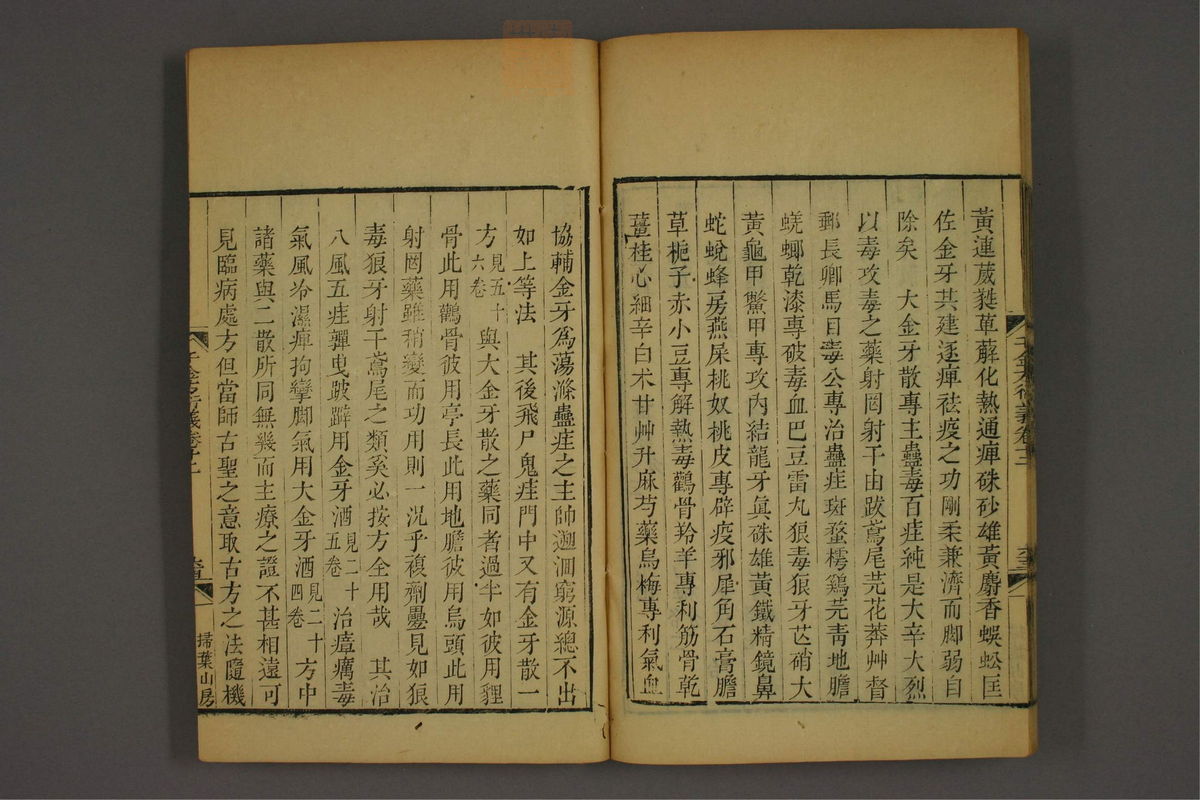 黃連葳蕤萆薢化熱通痺硃砂雄黃麝香蜈蚣匡
佐金牙其建逐痺祛疫之功剛柔兼濟而脚弱自
除矣　大金牙散專主蠱毒百疰純是大辛大烈
以毒攻毒之藥射罔射干由跋鳶尾芫花莽艸督
郵長卿馬目毒公專治蠱疰斑蝥樗鷄芫青地膽
蜣螂乾漆專破毒血巴豆雷丸狼毒狼牙芒硝大
黃龜甲鱉甲專攻內結龍牙眞硃雄黃鐵精鏡鼻
蛇蛻蜂房燕屎桃奴桃皮專辟疫邪犀角石膏膽
草梔子赤小豆專解熱毒鸛骨羚羊專利筋骨乾
薑桂心細辛白朮甘艸升麻芍藥烏梅專利氣血
協輔金牙爲蕩滌蠱疰之主帥遡洄窮源總不出
如上等法　其後飛尸鬼疰門中又有金牙散一
方見五十六卷與大金牙散之藥同者過半如彼用貍
骨此用鸛骨彼用亭長此用地膽彼用烏頭此用
射罔藥雖稍變而功用則一況乎複劑疊見如狼
毒狼牙射干鳶尾之類奚必按方全用哉　其治
八風五疰軃曳跛躃用金牙酒見二十五卷治瘴癘毒
氣風冷濕痺拘攣脚氣用大金牙酒見二十四卷方中
諸藥與二散所同無幾而主療之證不甚相遠可
見臨病處方但當師古聖之意取古方之法隨機
掃葉山房